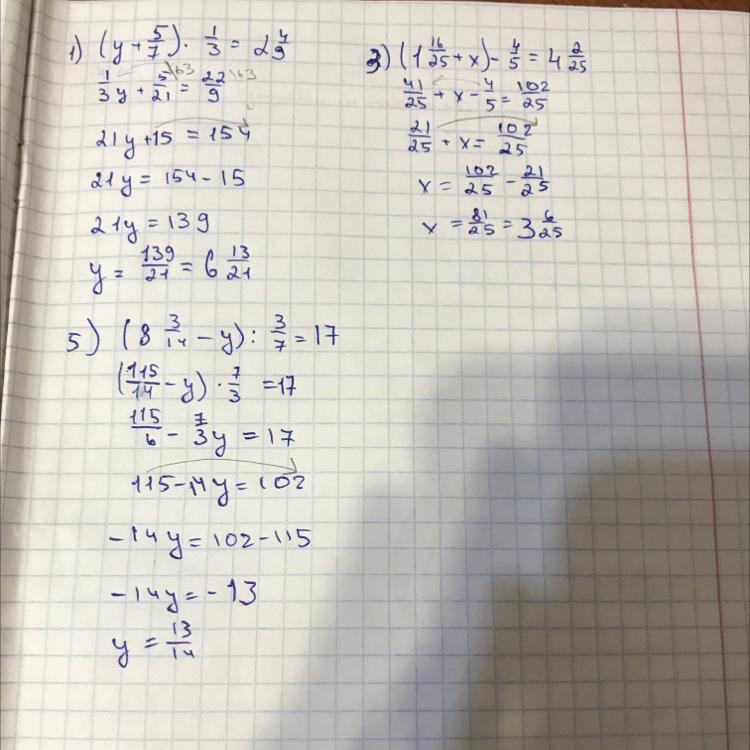 1) (y + 5/7) · 1/3 = 2 4/9
1/3 y + 5/21 \63 = 22/9 \63
21y + 15 = 154
21y = 154 - 15
21y = 139
y = 139/21 = 6 13/21
3) (1 16/25 + x) - 4/5 = 4 2/25
41/25 + x - 4/5 = 102/25
21/25 + x = 102/25
x = 102/25 - 21/25
x = 81/25 = 3 6/25
5) (8 3/14 - y) : 3/7 = 17
(115/14 - y) · 7/3 = 17
115/6 - 7/3 y = 17
115 - 14y = 102
-14y = 102 - 115
-14y = -13
y = 13/14